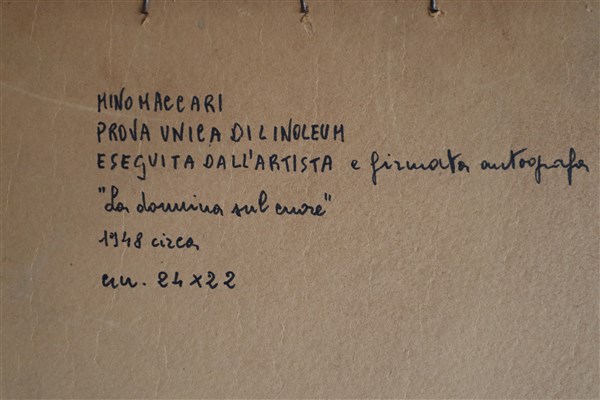 MINO MACCARI
PROVA UNICA DI LINOLEUM
ESEGUITA DALL'ARTISTA e firmata autografa
"La donnina sul cuore"
1948 circa
cm. 24x22